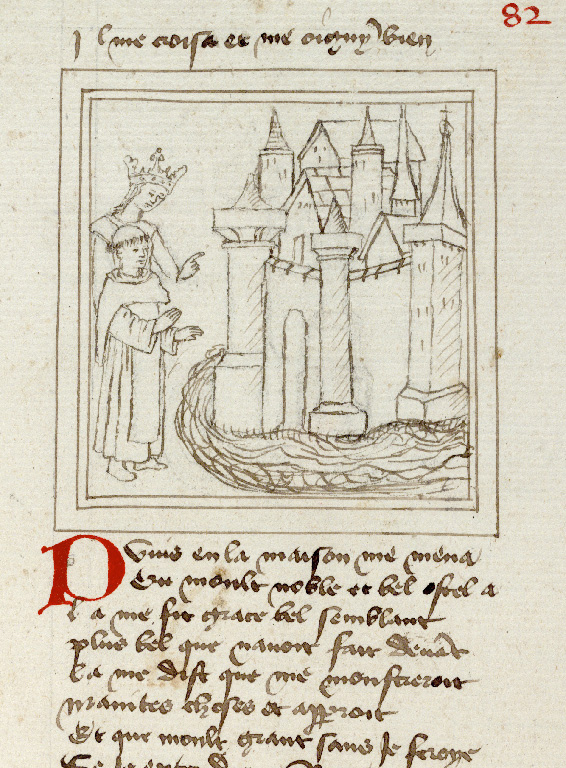 82
Il me croisa et me oigny bien
Puis en la maison me mena
Ou moult noble et bel ostel a
La me fit grace bel semblant
plus bel que navoit fait devāt
La me dist que me monstreroit
maintes choses et apperoit
Et que moult grant sans Je feroye